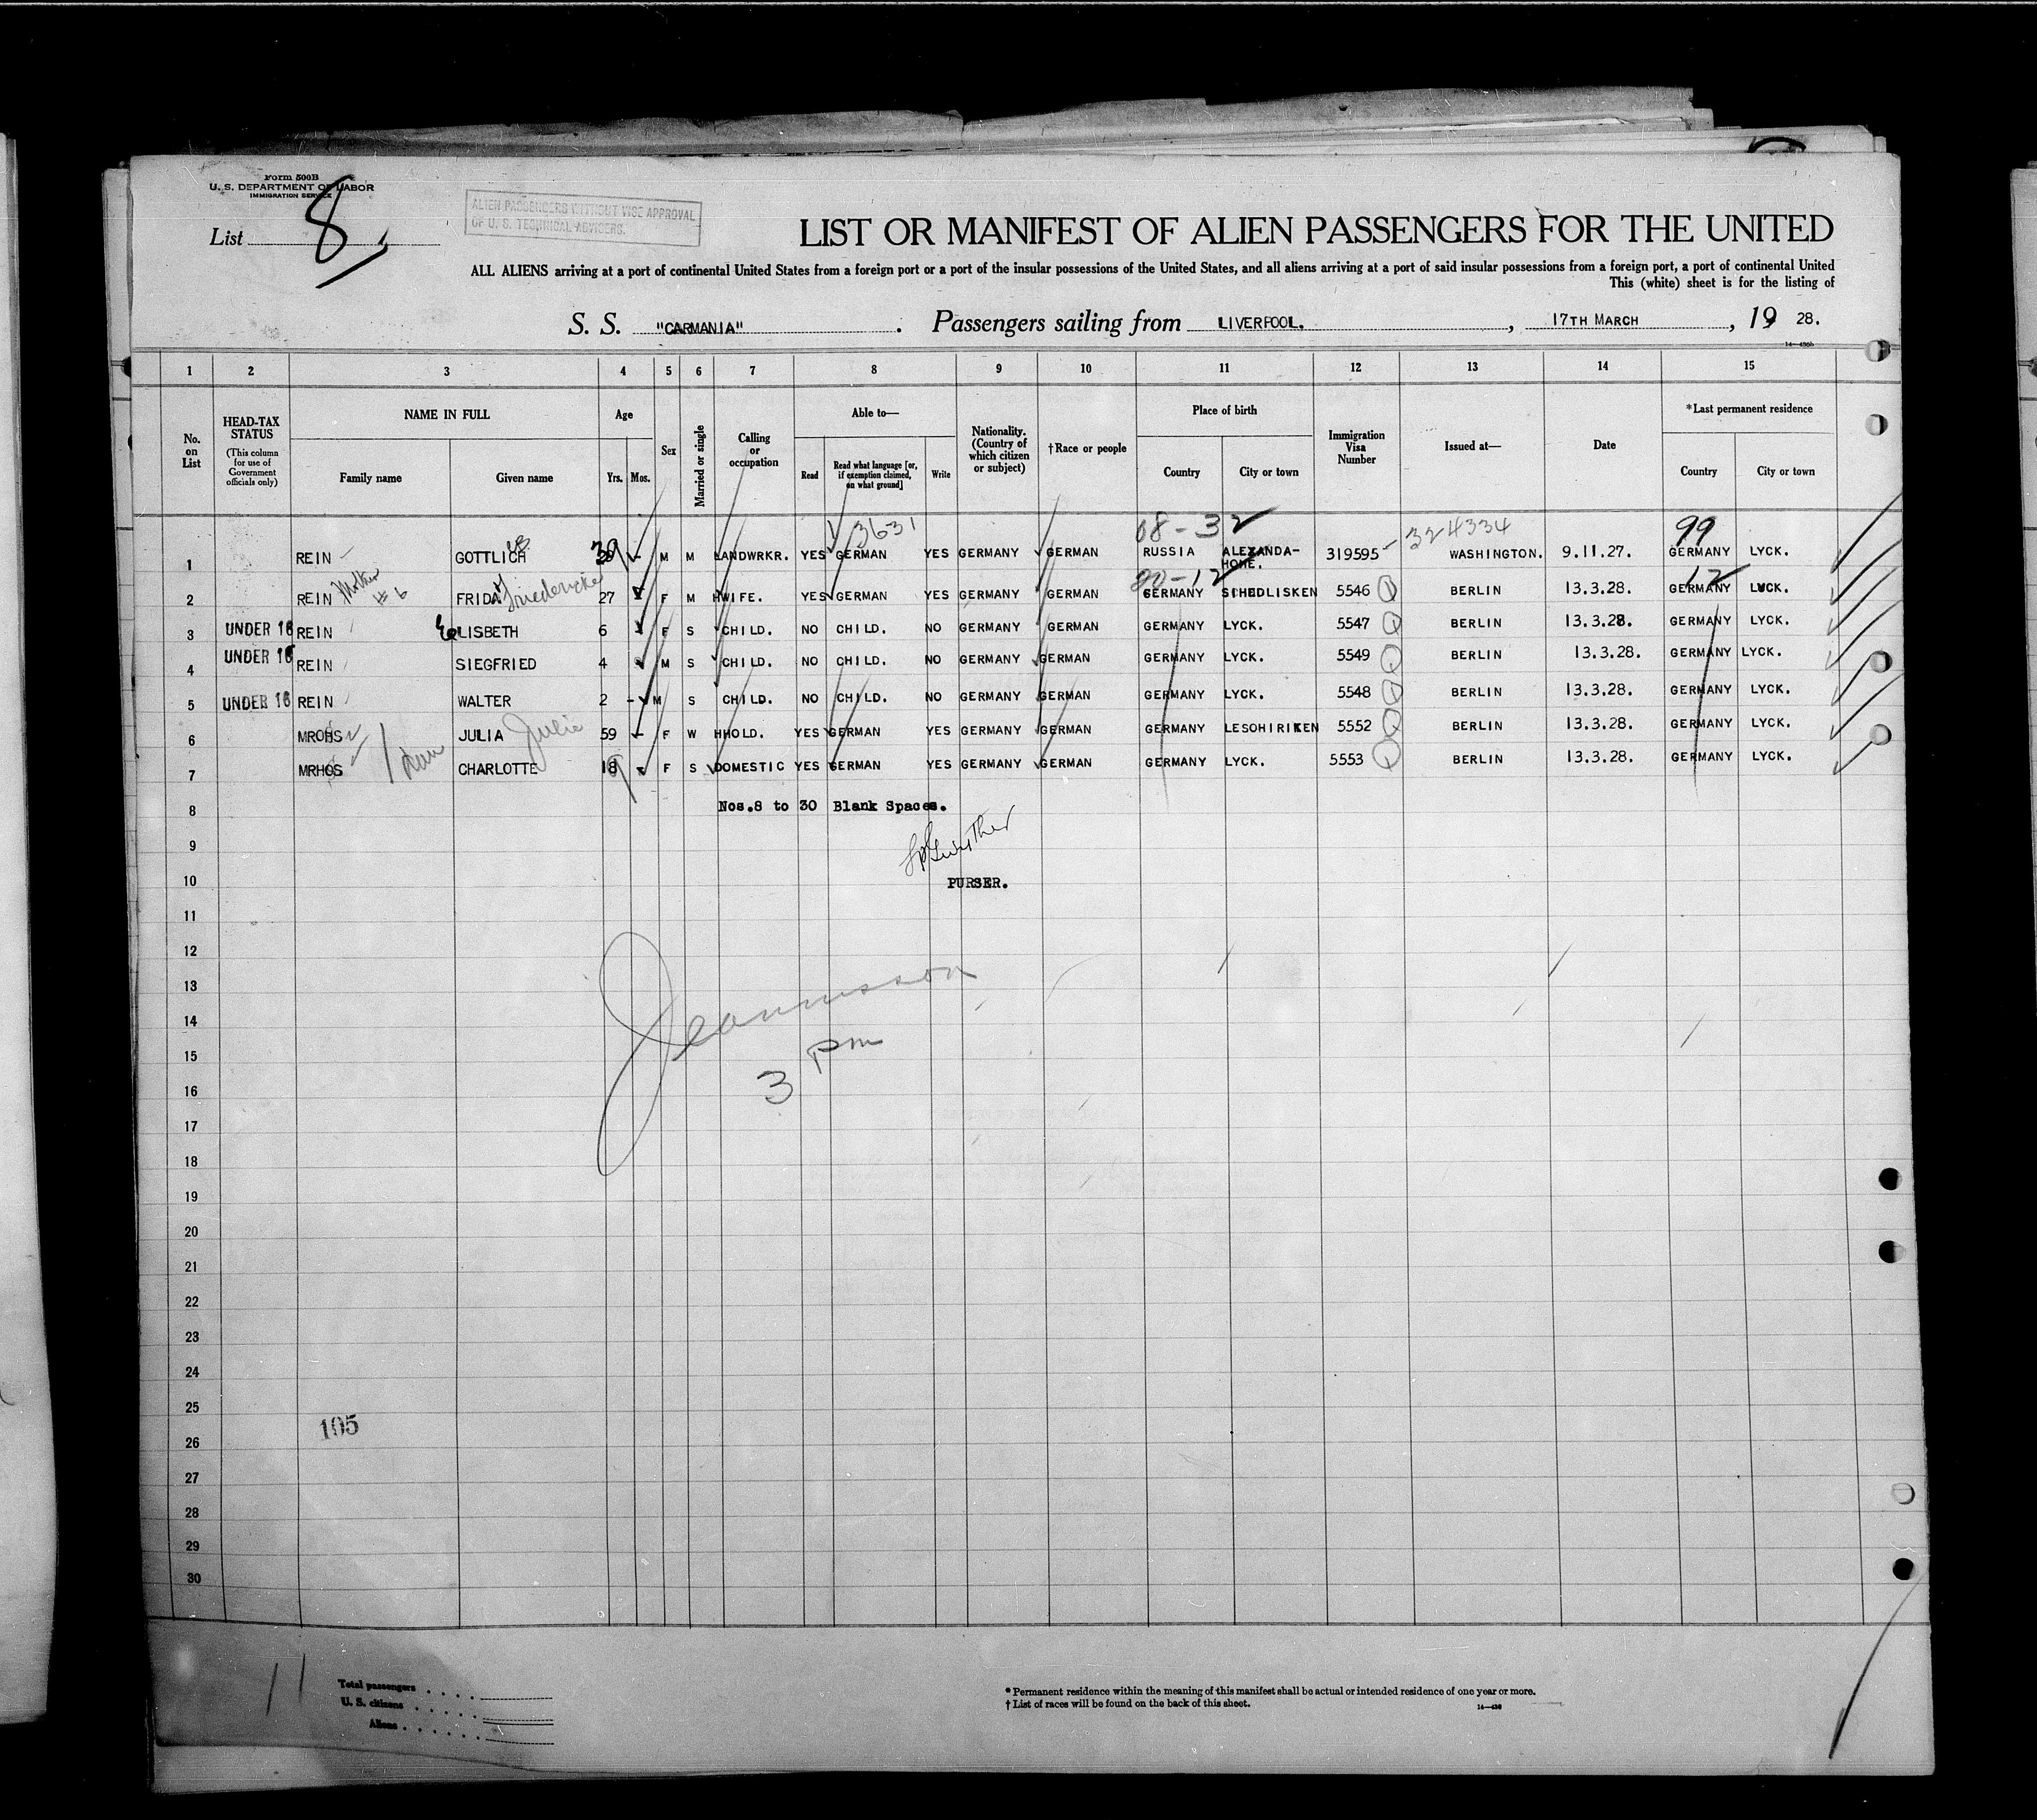 Form 500B
U. S. DEPARTMENT OF LABOR
IMMIGRATION SERVICE
List 8
ALIEN PASSENGERS WITHOUT VISE APPROVAL
OF U. S. TECHNICAL ADVISERS.
LIST OR MANIFEST OF ALIEN PASSENGERS FOR THE UNITED
ALL ALIENS arriving at a port of continental United States from a foreign port or a port of the insular possessions of the United States, and all aliens arriving at a port of said insular possessions from a foreign port, a port of continental United
This (white) sheet is for the listing of
S. S. "CARMANIA". Passengers sailing from LIVERPOOL., 17TH MARCH, 19 28.
14—436b
1 2 3 4 5 6 7 8 9 10 11 12 13 14 15
No. on List
HEAD-TAX STATUS (This column for use of Government officials only)
NAME IN FULL
Family name Given name
Age
Yrs. Mos.
Sex
Married or single
Calling or occupation
Able to—
Read Read what language [or, if exemption claimed, on what ground] Write
Nationality. (Country of which citizen or subject)
†Race or people
Place of birth
Country City or town
Immigration Visa Number
Issued at—
Date
*Last permanent residence
Country City or town
3631 08-32 324334 99
1 REIN GOTTLICH 39 - M M LANDWRKR. YES GERMAN YES GERMANY GERMAN RUSSIA ALEXANDA-HOHE. 319595 WASHINGTON. 9.11.27. GERMANY LYCK.
Mother #6 Friedericke 12
2 REIN FRIDA 27 F M HWIFE. YES GERMAN YES GERMANY GERMAN GERMANY SIHEDLISKEN 5546 Q BERLIN 13.3.28. GERMANY LYCK.
3 UNDER 16 REIN ELISBETH 6 F S CHILD. NO CHILD. NO GERMANY GERMAN GERMANY LYCK. 5547 Q BERLIN 13.3.28. GERMANY LYCK.
4 UNDER 16 REIN SIEGFRIED 4 M S CHILD. NO CHILD. NO GERMANY GERMAN GERMANY LYCK. 5549 Q BERLIN 13.3.28. GERMANY LYCK.
5 UNDER 16 REIN WALTER 2 - M S CHILD. NO CHILD. NO GERMANY GERMAN GERMANY LYCK. 5548 Q BERLIN 13.3.28. GERMANY LYCK.
6 MROHS JULIA Julie 59 - F W HHOLD. YES GERMAN YES GERMANY GERMAN GERMANY LESOHIRIKEN 5552 Q BERLIN 13.3.28. GERMANY LYCK.
7 MRHOS CHARLOTTE 18 - F S DOMESTIC YES GERMAN YES GERMANY GERMAN GERMANY LYCK. 5553 Q BERLIN 13.3.28. GERMANY LYCK.
8 Nos.8 to 30 Blank Spaces.
9
10 PURSER.
11
12
13
14
15 3 pm
16
17
18
19
20
21
22
23
24
25
105
26
27
28
29
30
11
Total passengers
U. S. citizens
Aliens
* Permanent residence within the meaning of this manifest shall be actual or intended residence of one year or more.
† List of races will be found on the back of this sheet.
14—436